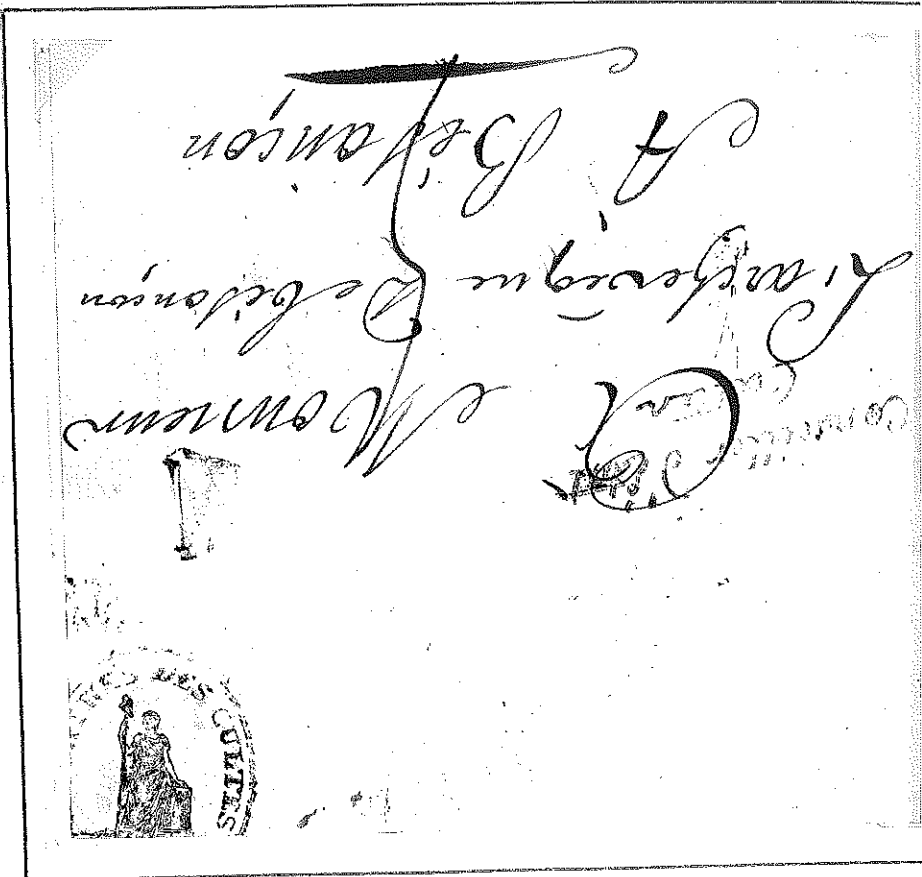 A Monsieur
L'archevêque De bésançon
A Bésançon
DES CULTES